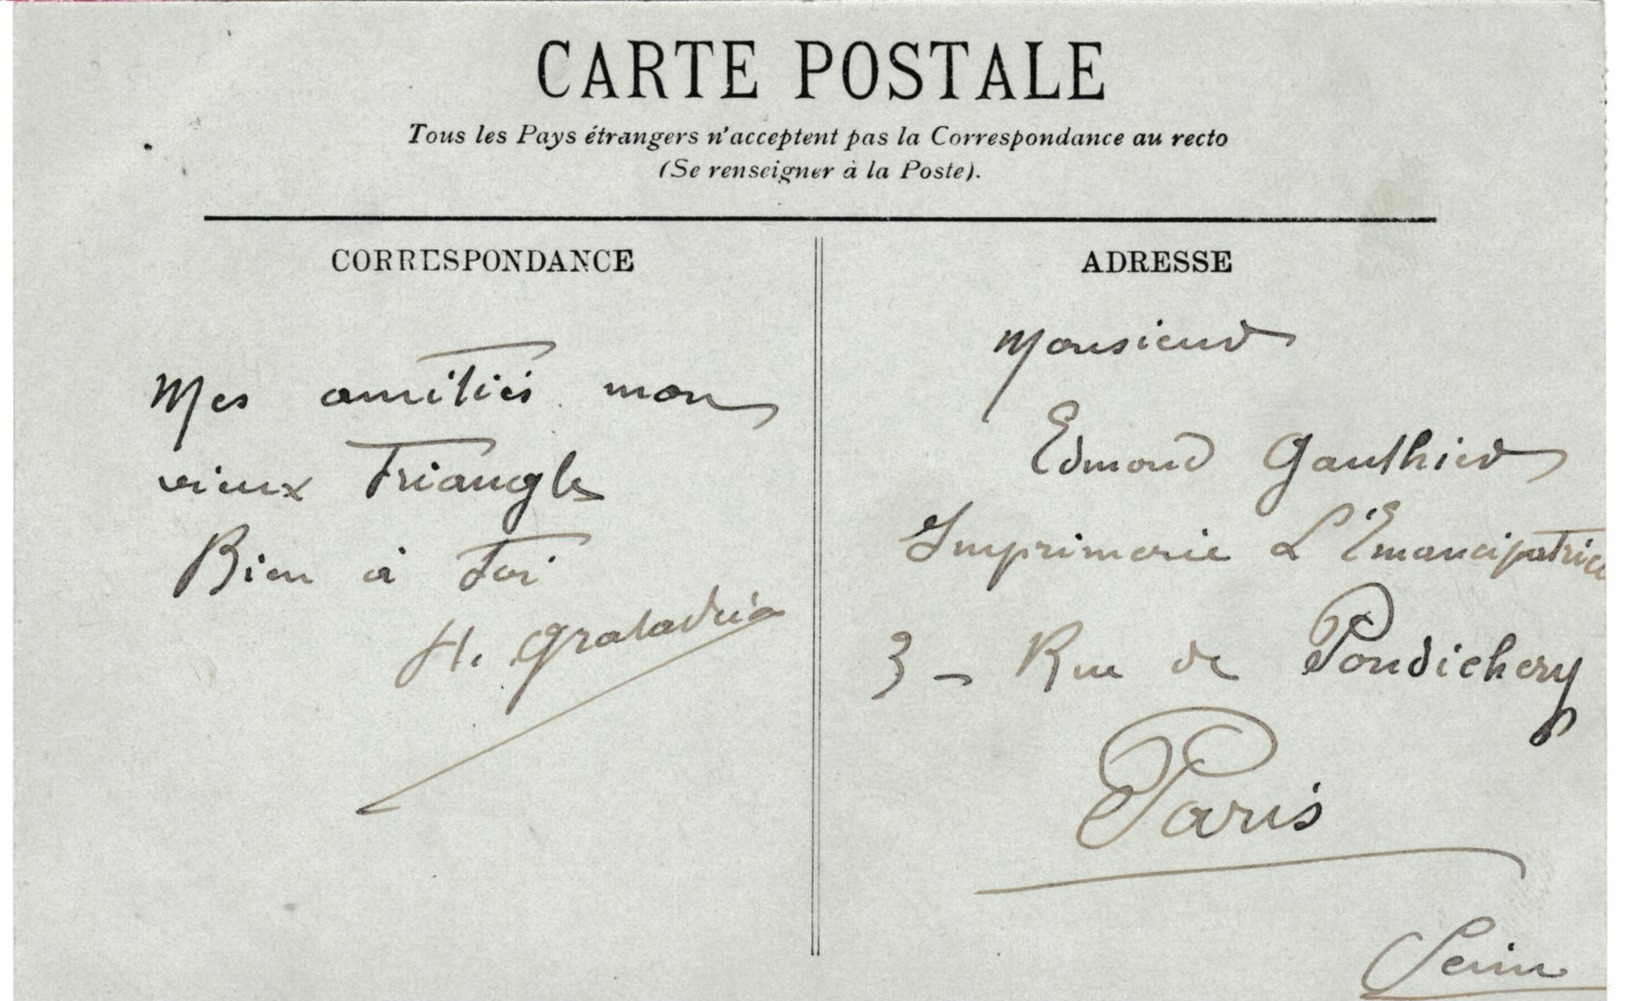 CARTE POSTALE
Tous les Pays étrangers n'acceptent pas la Correspondance au recto
(Se renseigner à la Poste).
CORRESPONDANCE
Mes amitiés mon
vieux Triangle
Bien à toi
H.
ADRESSE
Monsieur
Edmond Gauthier
Imprimerie L'Emancipatrice
3 - Rue de Pondichery
Paris
Seine